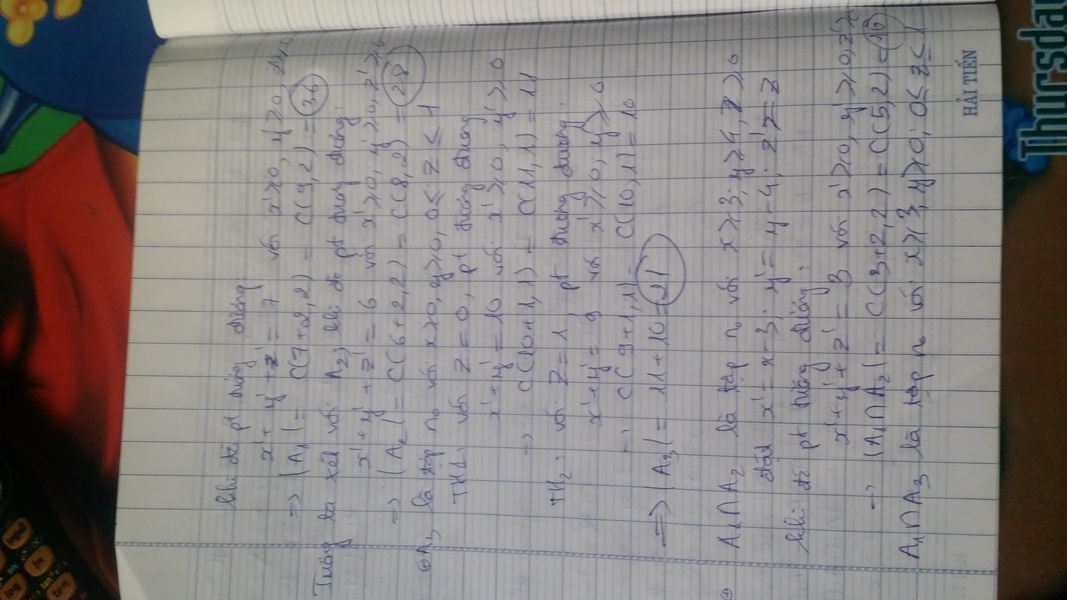 khi đó pt tương đương:
x' + y' + z' = 7 với x' ≥ 0, y' ≥ 0, z' ≥ 0
=> |A₁| = C(7+2,2) = C(9,2) = 36
Tương tự xét với A₂, khi đó pt tương đương:
x' + y' + z' = 6 với x' ≥ 0, y' ≥ 0, z' ≥ 0
=> |A₂| = C(6+2,2) = C(8,2) = 28
A₃ là tập n₀ với x ≥ 0, y ≥ 0, 0 ≤ z ≤ 1
TH1: với z = 0, pt tương đương
x' + y' = 10 với x' ≥ 0, y' ≥ 0
=> C(10+1,1) = C(11,1) = 11
TH2: với z = 1, pt tương đương:
x' + y' = 9 với x' ≥ 0, y' ≥ 0
=> C(9+1,1) = C(10,1) = 10
=> |A₃| = 11 + 10 = 21
⊕ A₁∩A₂ là tập n₀ với x ≥ 3; y ≥ 4, z ≥ 0
đặt x' = x-3; y' = y-4; z' = z
khi đó pt tương đương:
x' + y' + z' = 3 với x' ≥ 0, y' ≥ 0, z' ≥
=> |A₁∩A₂| = C(3+2,2) = C(5,2) = 10
A₁∩A₃ là tập n₀ với x ≥ 3, y ≥ 0, 0 ≤ z ≤ 1
HẢI TIẾN
Thursda